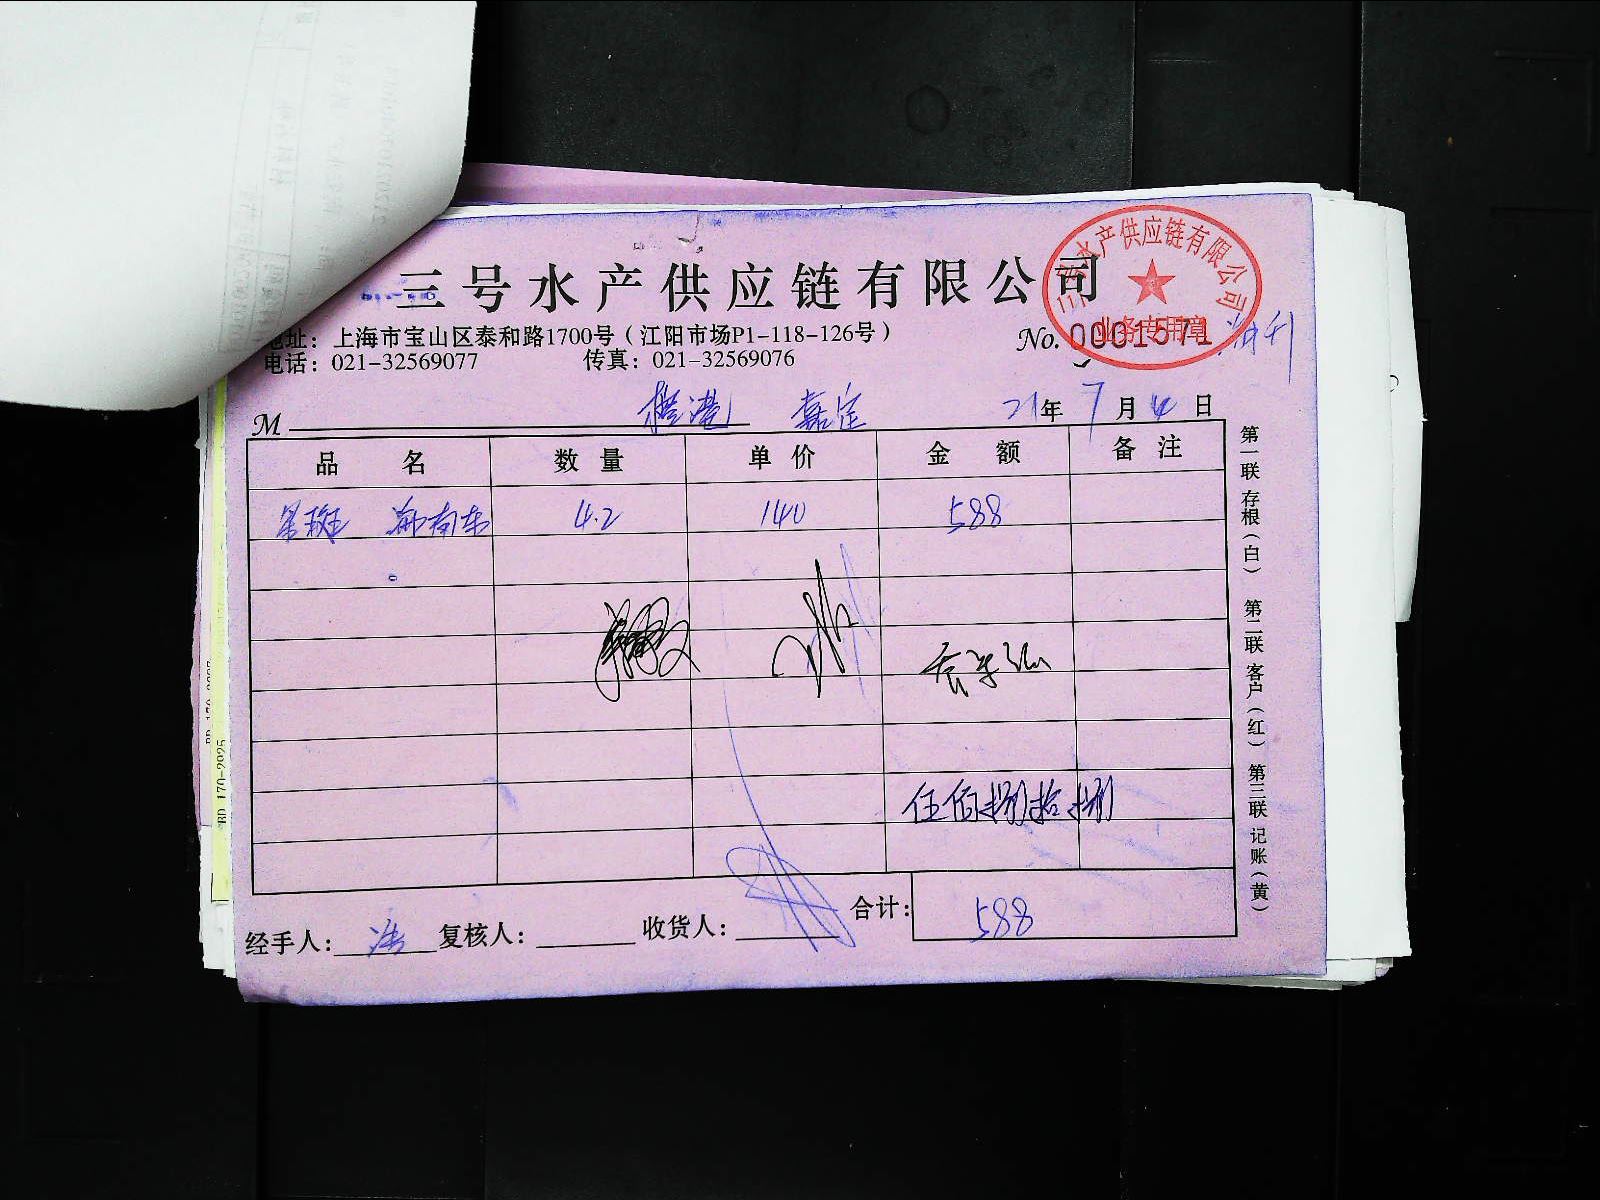 三号水产供应链有限公司
三号水产供应链有限公司
业务专用章
地址：上海市宝山区泰和路1700号（江阳市场P1-118-126号）
No. 0001571
电话：021-32569077 传真：021-32569076
M 嘉定 21年7月4日
品名 数量 单价 金额 备注
4.2 140 588
伍佰捌拾捌
经手人： 复核人： 收货人： 合计： 588
第一联 存根（白） 第二联 客户（红） 第三联 记账（黄）
RD 170-2925